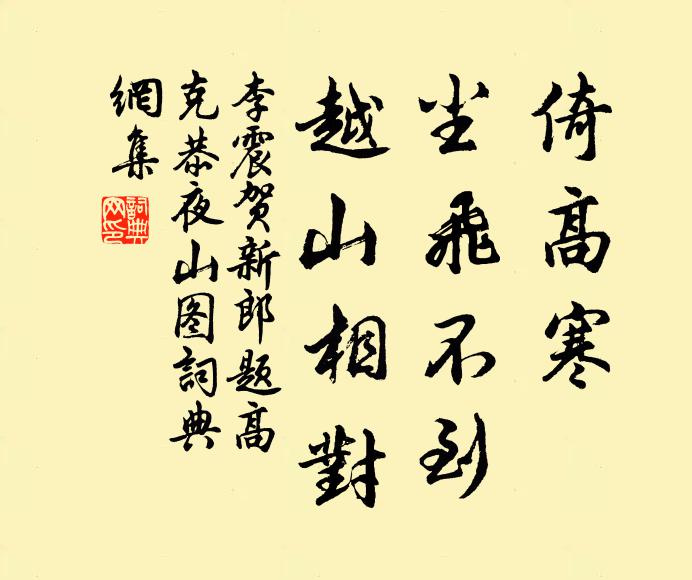 倚高寒
尘飛不到
越山相對
李震贺新郎题高
克恭夜山图詞典
網集
詞典
网印